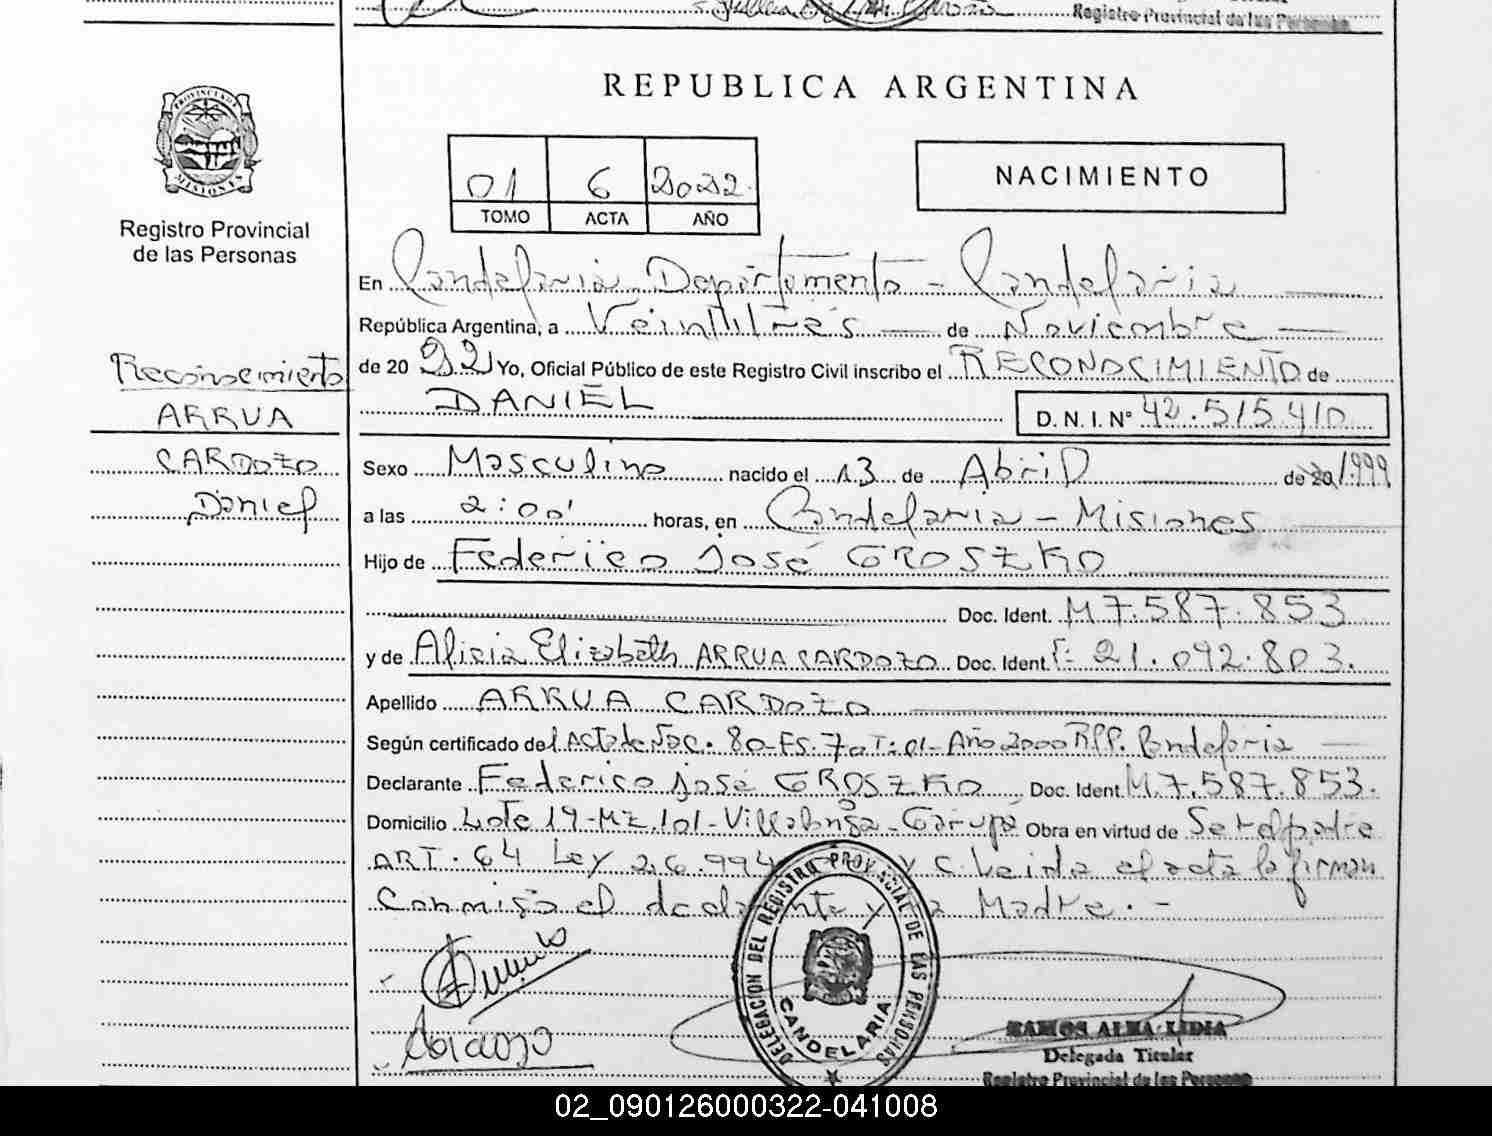 Registro Provincial de las Personas
REPUBLICA ARGENTINA
PROVINCIA DE
MISIONES
Registro Provincial
de las Personas
01 6 2022
TOMO ACTA AÑO
NACIMIENTO
En Candelaria Departamento - Candelaria
República Argentina, a Veintitrés de Noviembre
de 20 22 Yo, Oficial Público de este Registro Civil inscribo el RECONOCIMIENTO de
DANIEL D. N. I. Nº 42.515.410
Reconocimiento
ARRUA
CARDOZO
Daniel
Sexo Masculino nacido el 13 de Abril de 20 1999
a las 2:00' horas, en Candelaria - Misiones
Hijo de Federico José GROSZKO
Doc. Ident. M 7.587.853
y de Alicia Elizabeth ARRUA CARDOZO Doc. Ident F: 21.092.803.
Apellido ARRUA CARDOZO
Según certificado del Acta de Nac. 80-Fs. 70 T: 01- Año 2000 RPP. Candelaria
Declarante Federico José GROSZKO Doc. Ident M. 7.587.853.
Domicilio Lote 19-Mz. 101-Villalonga-Garupá Obra en virtud de Ser el padre
ART. 64 Ley 26.994 y C. Leida el acta la firman
Conmigo el declarante y la Madre. -
DELEGACION DEL REGISTRO PROVINCIAL DE LAS PERSONAS
CANDELARIA
RAMOS ALBA LIDIA
Delegada Titular
Registro Provincial de las Personas
02_090126000322-041008